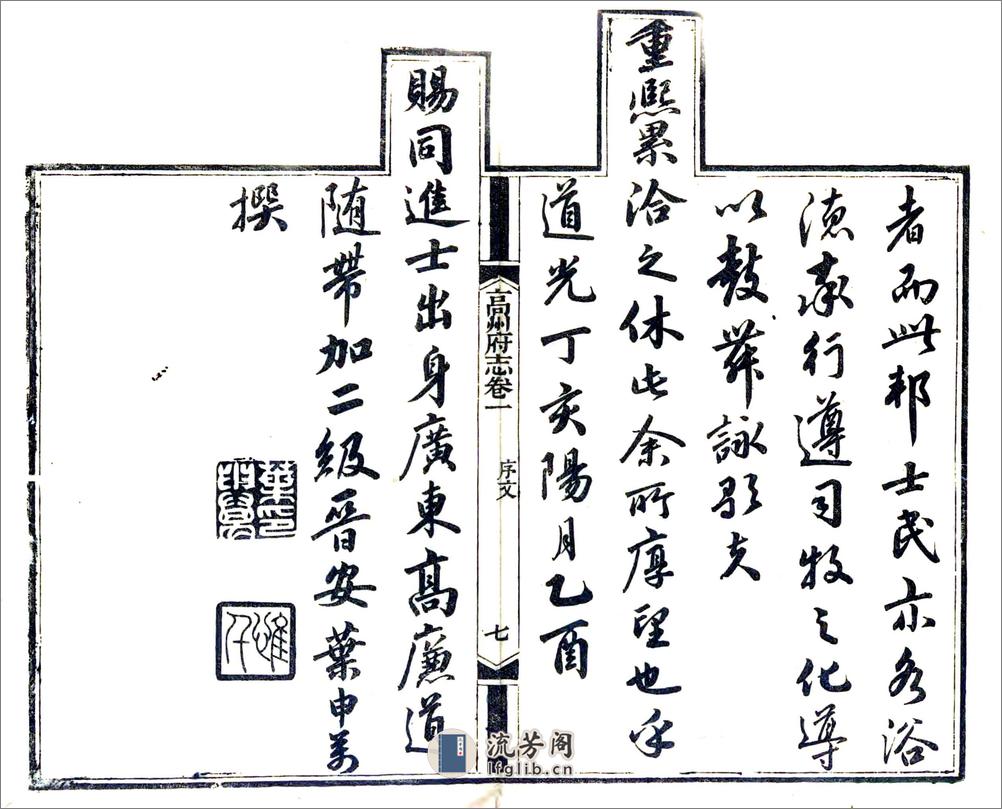 者而此邦士民亦各浴
德承行遵司牧之化導
以鼓舞詠歌夫
重熙累洽之休此余所厚望也乎
道光丁亥陽月乙酉
高州府志卷一
序文
七
賜同進士出身廣東高廉道
随帶加二級晉安葉申万
撰
葉印申萬
流芳阁
lfglib.cn